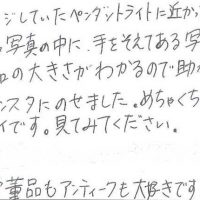 ジしていたペンダントライトに近かっ
写真の中に、手をそえてある写
品の大きさがわかるので助か
ンスタにのせました。めちゃくち
イです。見てみてください。
董品もアンティークも大好きです